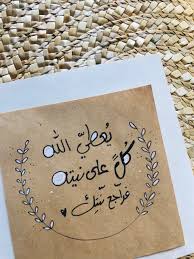 يُعطيّ الله
كُلً على نيته
فراجع نيّتك